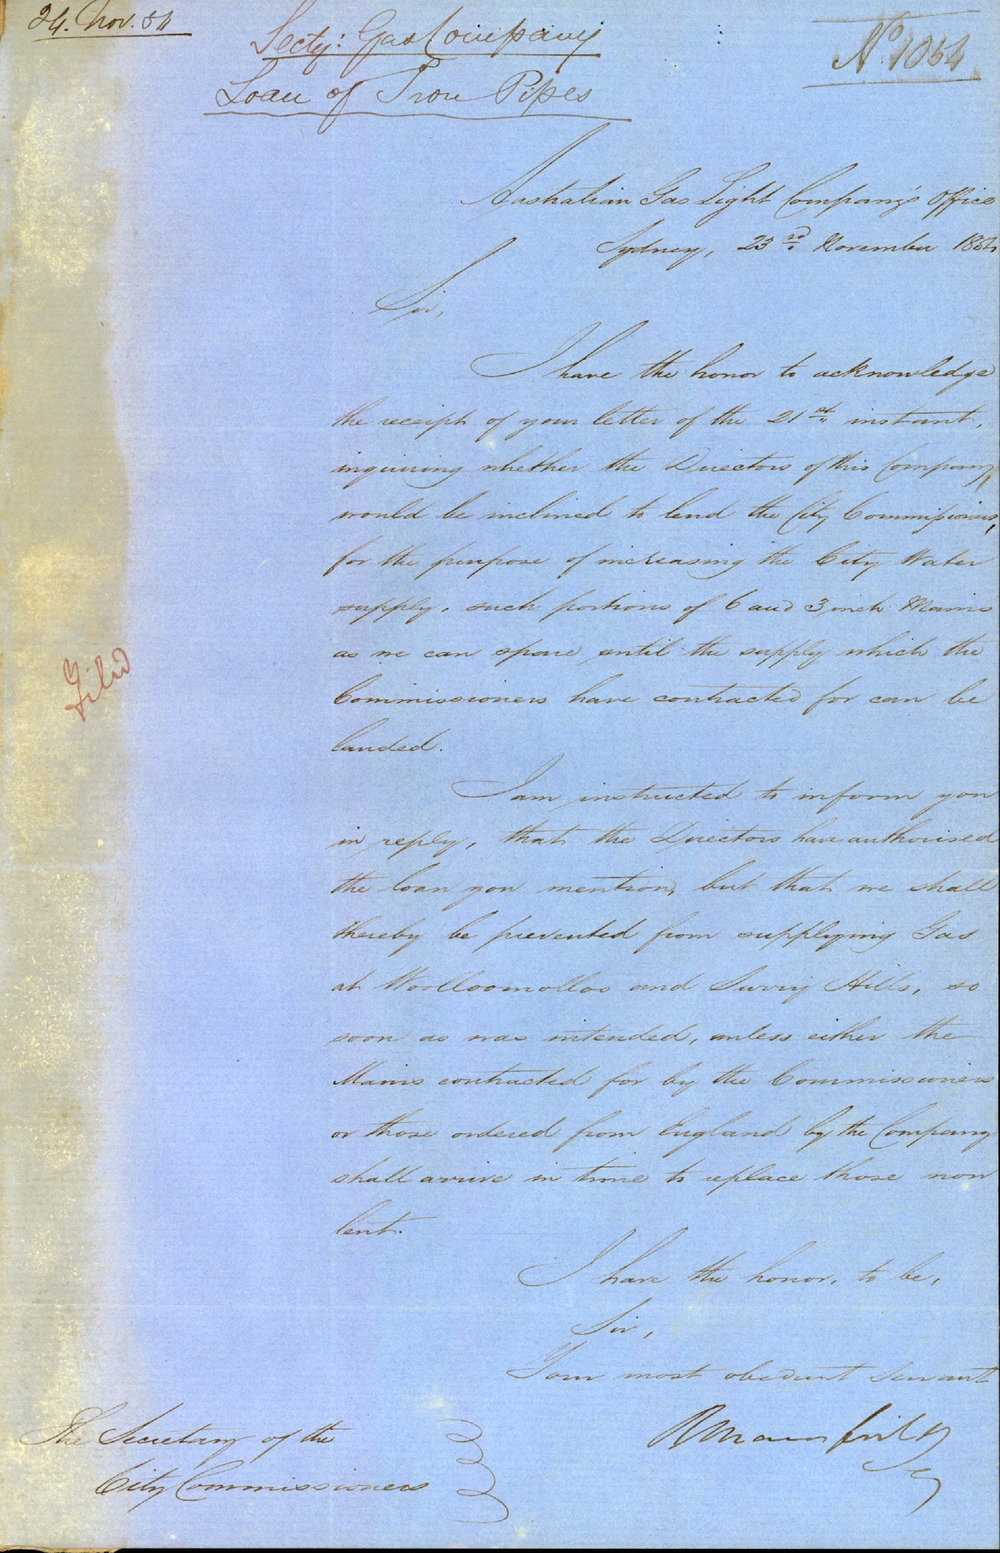 24. Nov. 54
Secty: Gas Company
Loan of Iron Pipes
No 1054
Australian Gas Light Company's Office
Sydney, 23rd November 1854
Sir,
I have the honor to acknowledge
the receipt of your letter of the 21st instant,
inquiring whether the Directors of this Company,
would be inclined to lend the City Commissioners,
for the purpose of increasing the City Water
supply, such portions of 6 and 3 inch Mains
as we can spare until the supply which the
Commissioners have contracted for can be
landed.
Filed
I am instructed to inform you
in reply, that the Directors have authorised
the loan you mention, but that we shall
thereby be prevented from supplying Gas
at Woolloomolloo and Surry Hills, so
soon as was intended, unless either the
Mains contracted for by the Commissioners
or those ordered from England by the Company
shall arrive in time to replace those now
lent.
I have the honor, to be,
Sir,
Your most obedient Servant
R Mansfield
Sy
The Secretary of the
City Commissioners